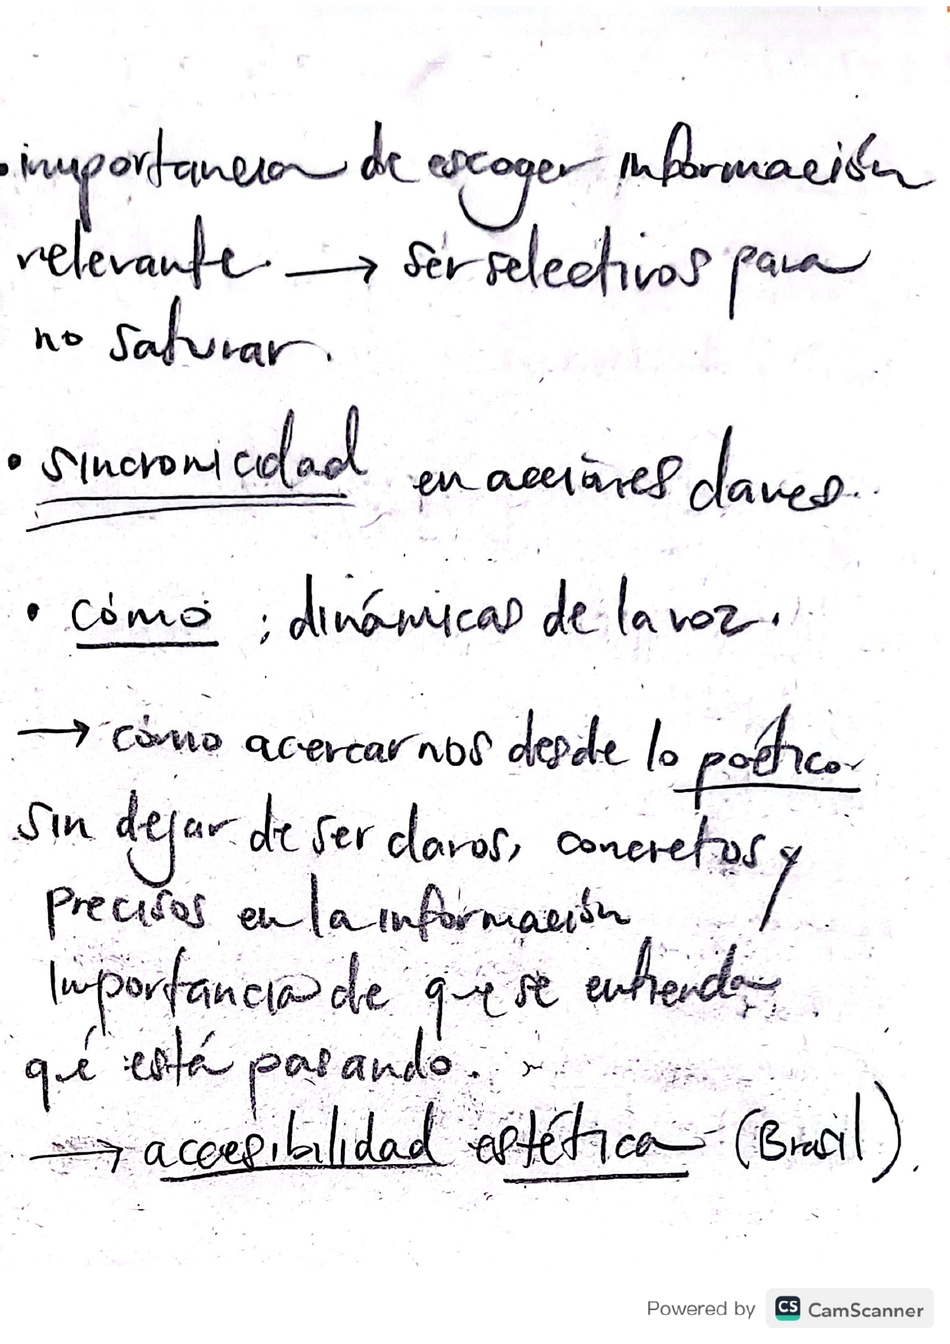 • importancia de escoger información
relevante. → ser selectivos para
no saturar.
• sincronicidad en acciones claves.
• cómo ; dinámicas de la voz.
→ cómo acercarnos desde lo poético
sin dejar de ser claros, concretos y
precisos en la información
Importancia de que se entienda
qué está pasando.
→ accesibilidad estética (Brasil).
Powered by CS CamScanner